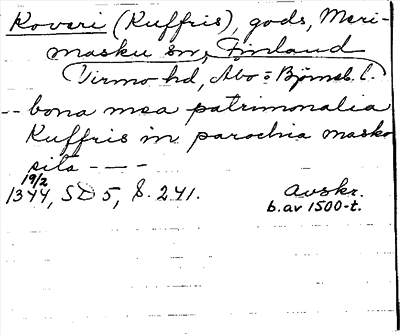 Koveri (Kuffris), gods, Meri-
masku sn, Finland
(Virmo hd, Åbo o Björneb. l.)
-- bona mea patrimonialia
Kuffris in parochia masko
sita - - -
19/2
1344, SD 5, s. 241. Avskr.
b. av 1500-t.